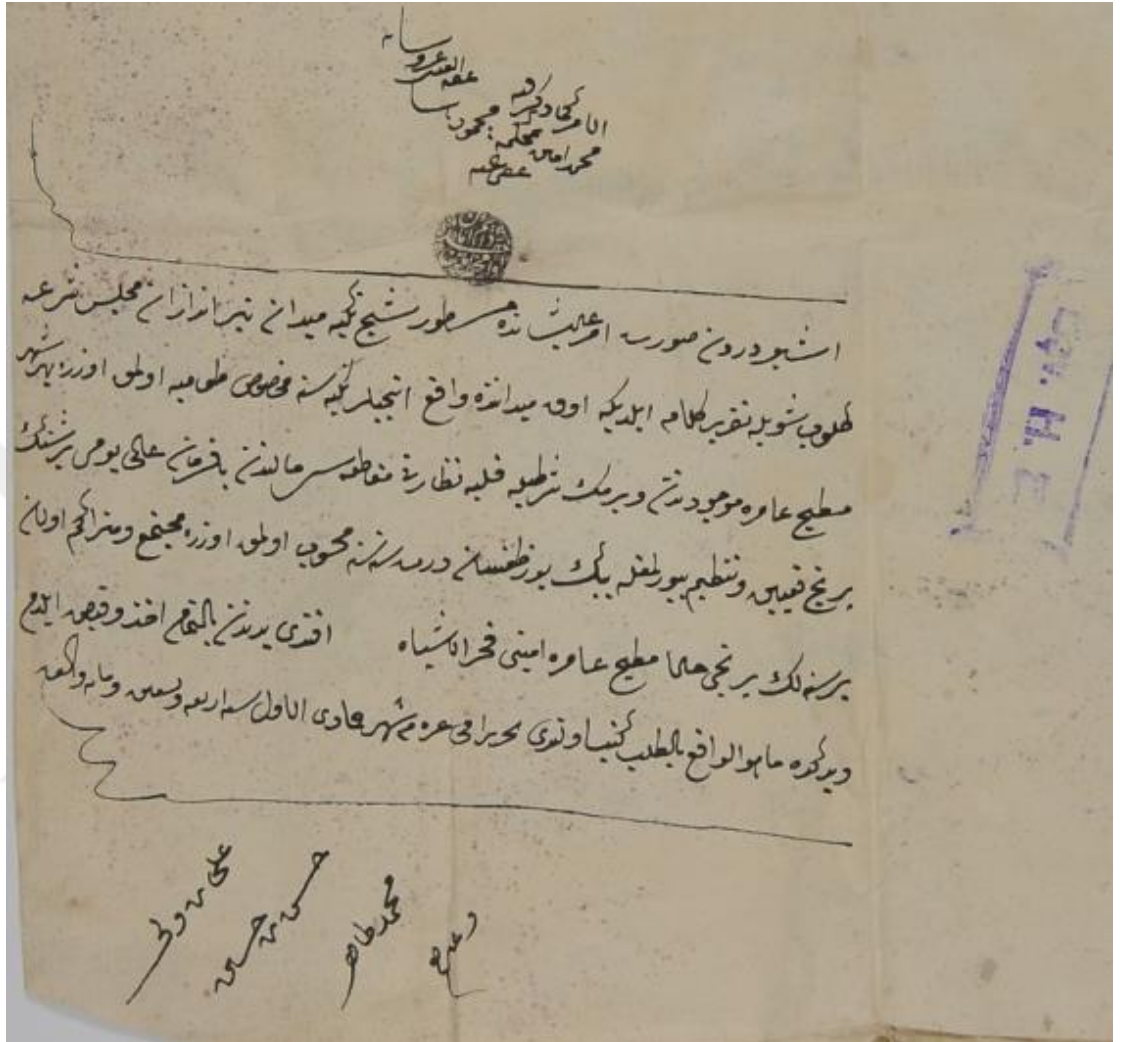 الامر كما ذكر فيه
محمد امين بمحكمة محمود پاشا
عفى عنه
اشبو درون صورت امر عاليشانده مسطور شيخ تكيه ميدان تيراندازان مجلس شرعه
كلوب شويله تقرير كلام ايلديكه اوق ميداننده واقع اتيجيلر تكيه سنه مخصوص طعاميه اولمق اوزره بهر شهر
مطبخ عامره موجودندن ويرمك شرطيله فلبه نظارتى مقاطعه سى مالندن بافرمان عالى يومى بر شنك
برنج تعيين وتنظيم بيورلمغله بيك يوز طقسان درت سنه سنه محسوب اولمق اوزره مجتمع ومتراكم اولان
بر سنه لك برنجى حالا مطبخ عامره امينى فخر الاشباه افندى يدندن بالتمام اخذ وقبض ايلدم
ديدكده ما هو الواقع بالطلب كتب اولندى تحريرا فى غره شهر جمادى الاول سنه اربعه وتسعين ومائه والف
على بن ولى
حسن بن حسين
محمد طاهر
وغيرهم